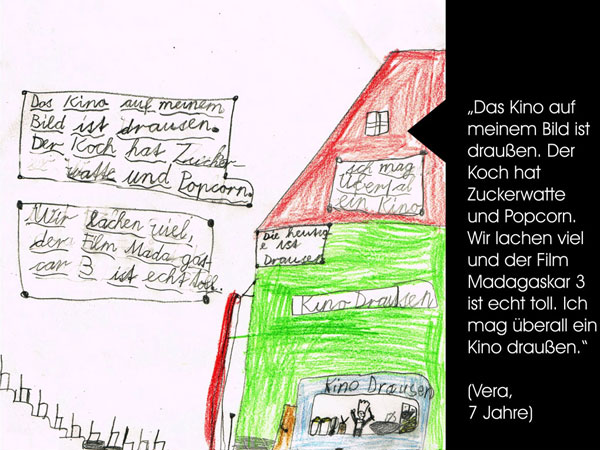 Das Kino auf meinem
Bild ist drausen.
Der Koch hat Zucker-
watte und Popcorn.
Wir lachen viel,
der Film Madagas-
car 3 ist echt toll.
ich mag
Überal
ein Kino
Die heutig
e ist
Drausen
Kino Draussen
Kino Drausen
„Das Kino auf
meinem Bild ist
draußen. Der
Koch hat
Zuckerwatte
und Popcorn.
Wir lachen viel
und der Film
Madagaskar 3
ist echt toll. Ich
mag überall ein
Kino draußen.“
(Vera,
7 Jahre)